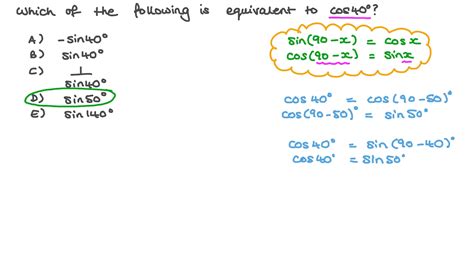 which of the following is equivalent to cos40°?
A) -sin40°
B) sin40°
C) 1/sin40°
D) sin50°
E) sin140°
sin(90-x) = cosx
cos(90-x) = sinx
cos40° = cos(90-50)°
cos(90-50)° = sin50°
cos40° = sin(90-40)°
cos40° = sin50°